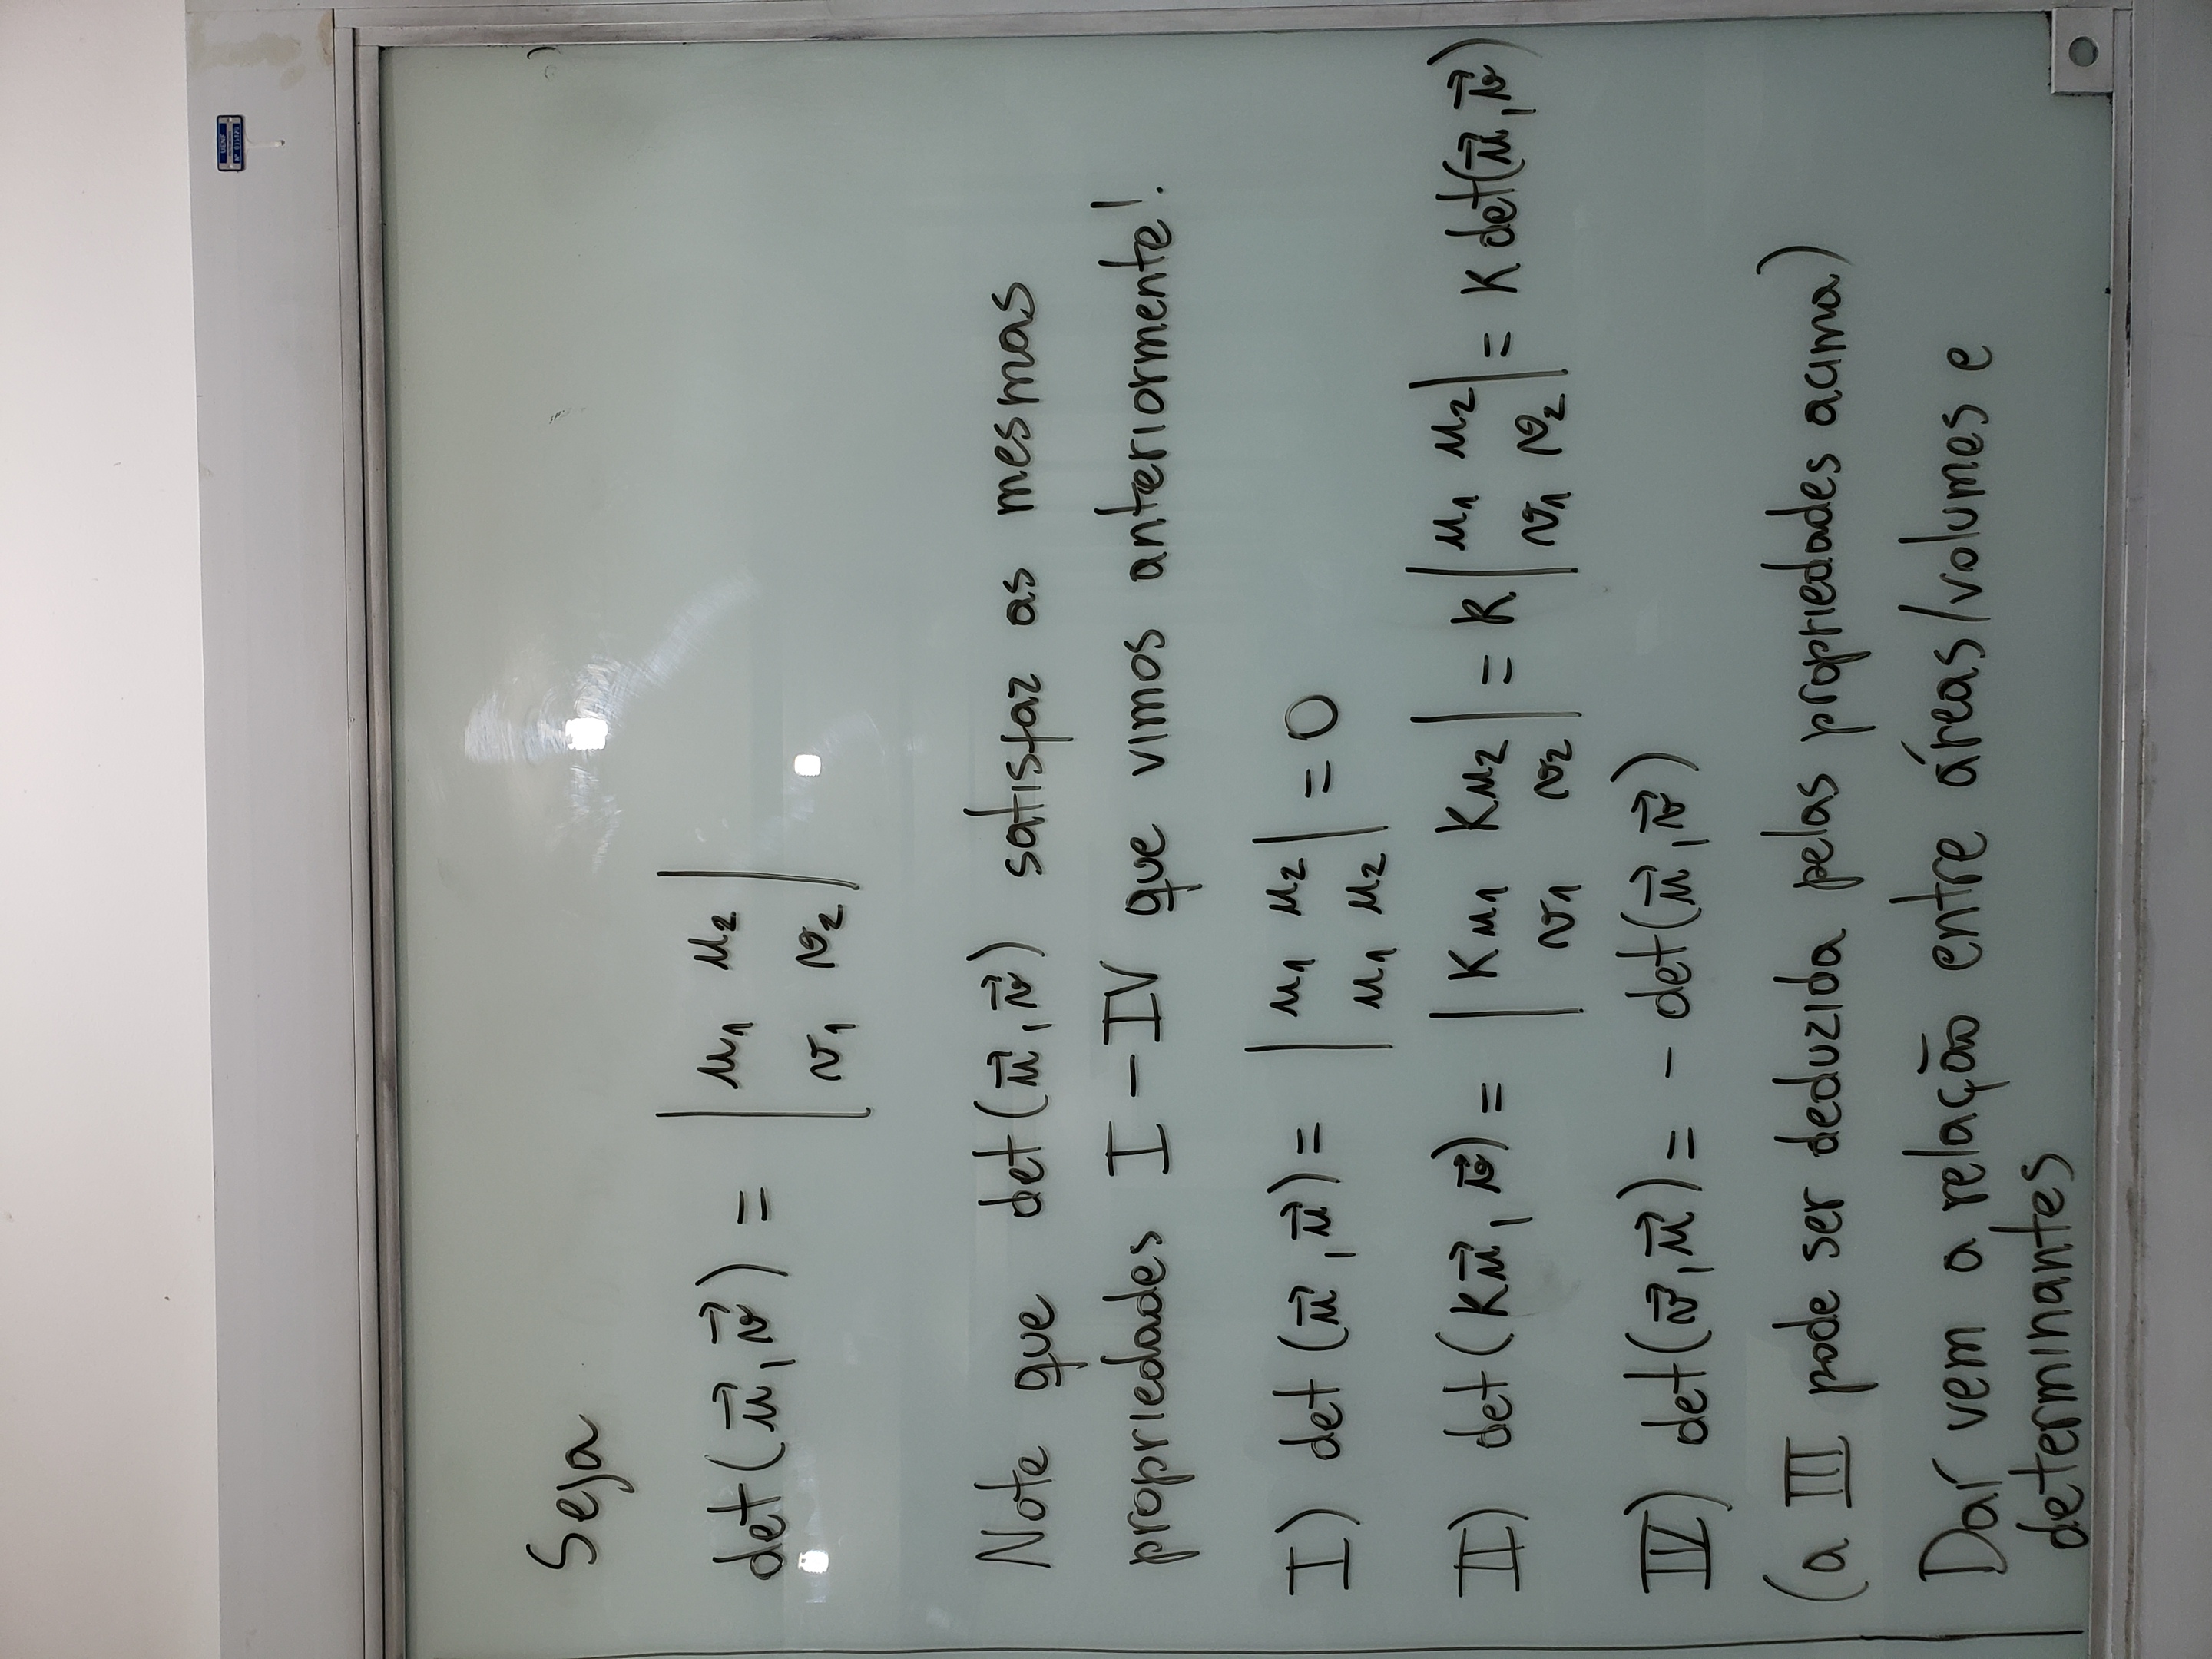 UENF
Seja
det(u⃗, v⃗) = | u₁ u₂ |
| v₁ v₂ |
Note que det(u⃗, v⃗) satisfaz as mesmas
propriedades I – IV que vimos anteriormente!
I) det(u⃗, u⃗) = | u₁ u₂ | = 0
| u₁ u₂ |
II) det(Ku⃗, v⃗) = | Ku₁ Ku₂ | = K | u₁ u₂ | = K det(u⃗, v⃗)
| v₁ v₂ | | v₁ v₂ |
IV) det(v⃗, u⃗) = - det(u⃗, v⃗)
(a III pode ser deduzida pelas propriedades acima)
Daí vem a relação entre áreas/volumes e
determinantes